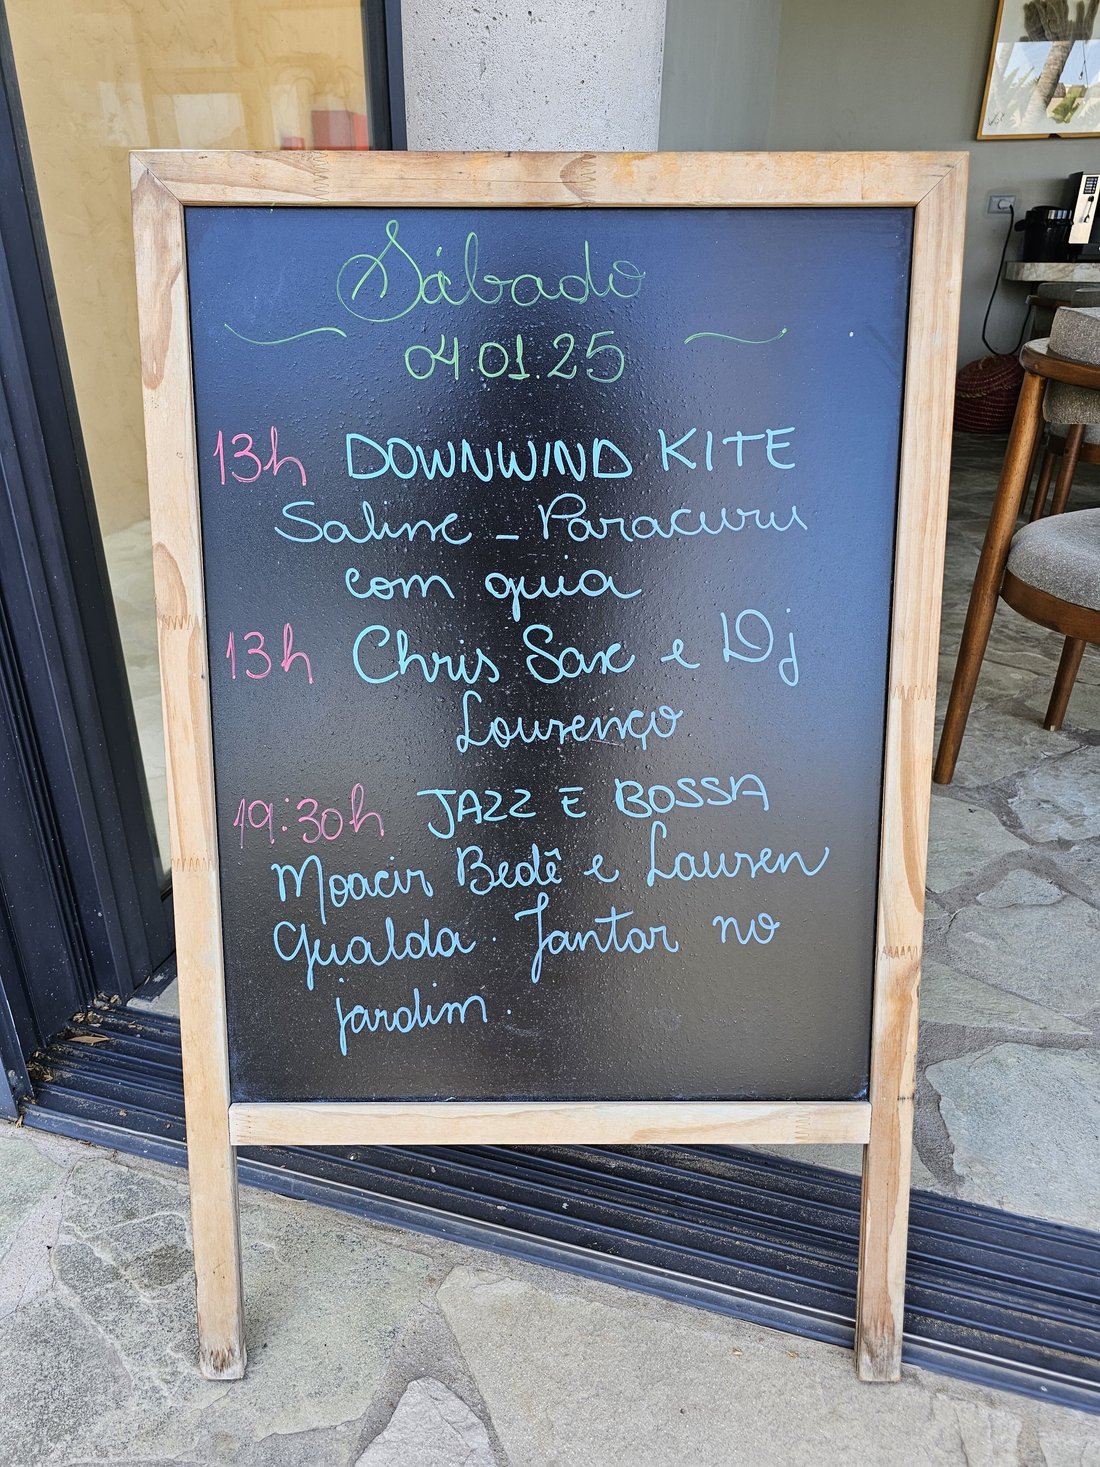 Sábado
04.01.25
13h DOWNWIND KITE
Saline - Paracuru
com guia
13h Chris Sax e Dj
Lourenço
19:30h JAZZ E BOSSA
Moacir Bedê e Lauren
Gualda. Jantar no
jardim.